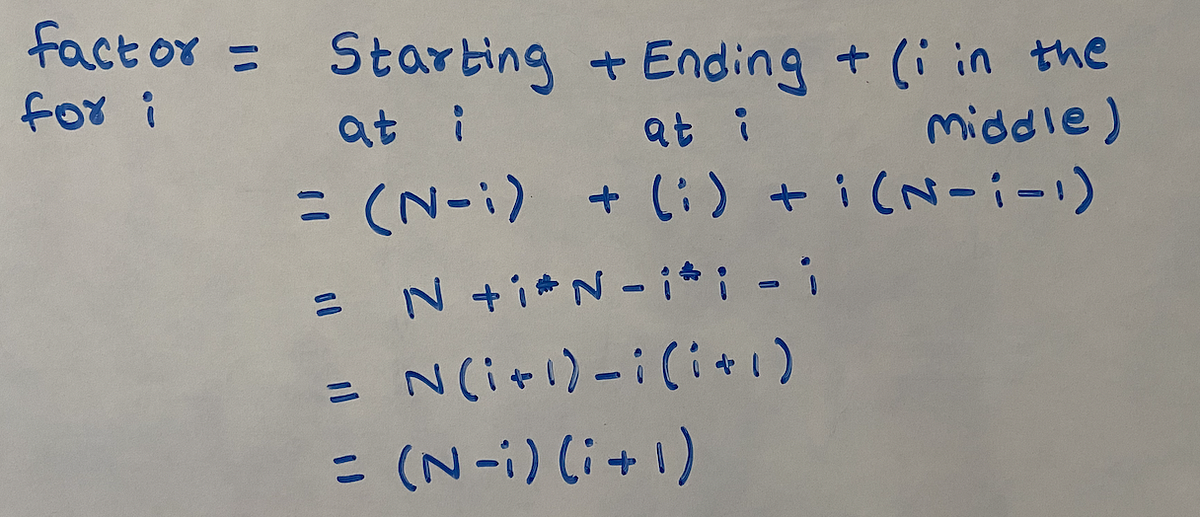 factor = Starting + Ending + (i in the
for i at i at i middle)
= (N-i) + (i) + i(N-i-1)
= N + i*N - i*i - i
= N(i+1) - i(i+1)
= (N-i)(i+1)